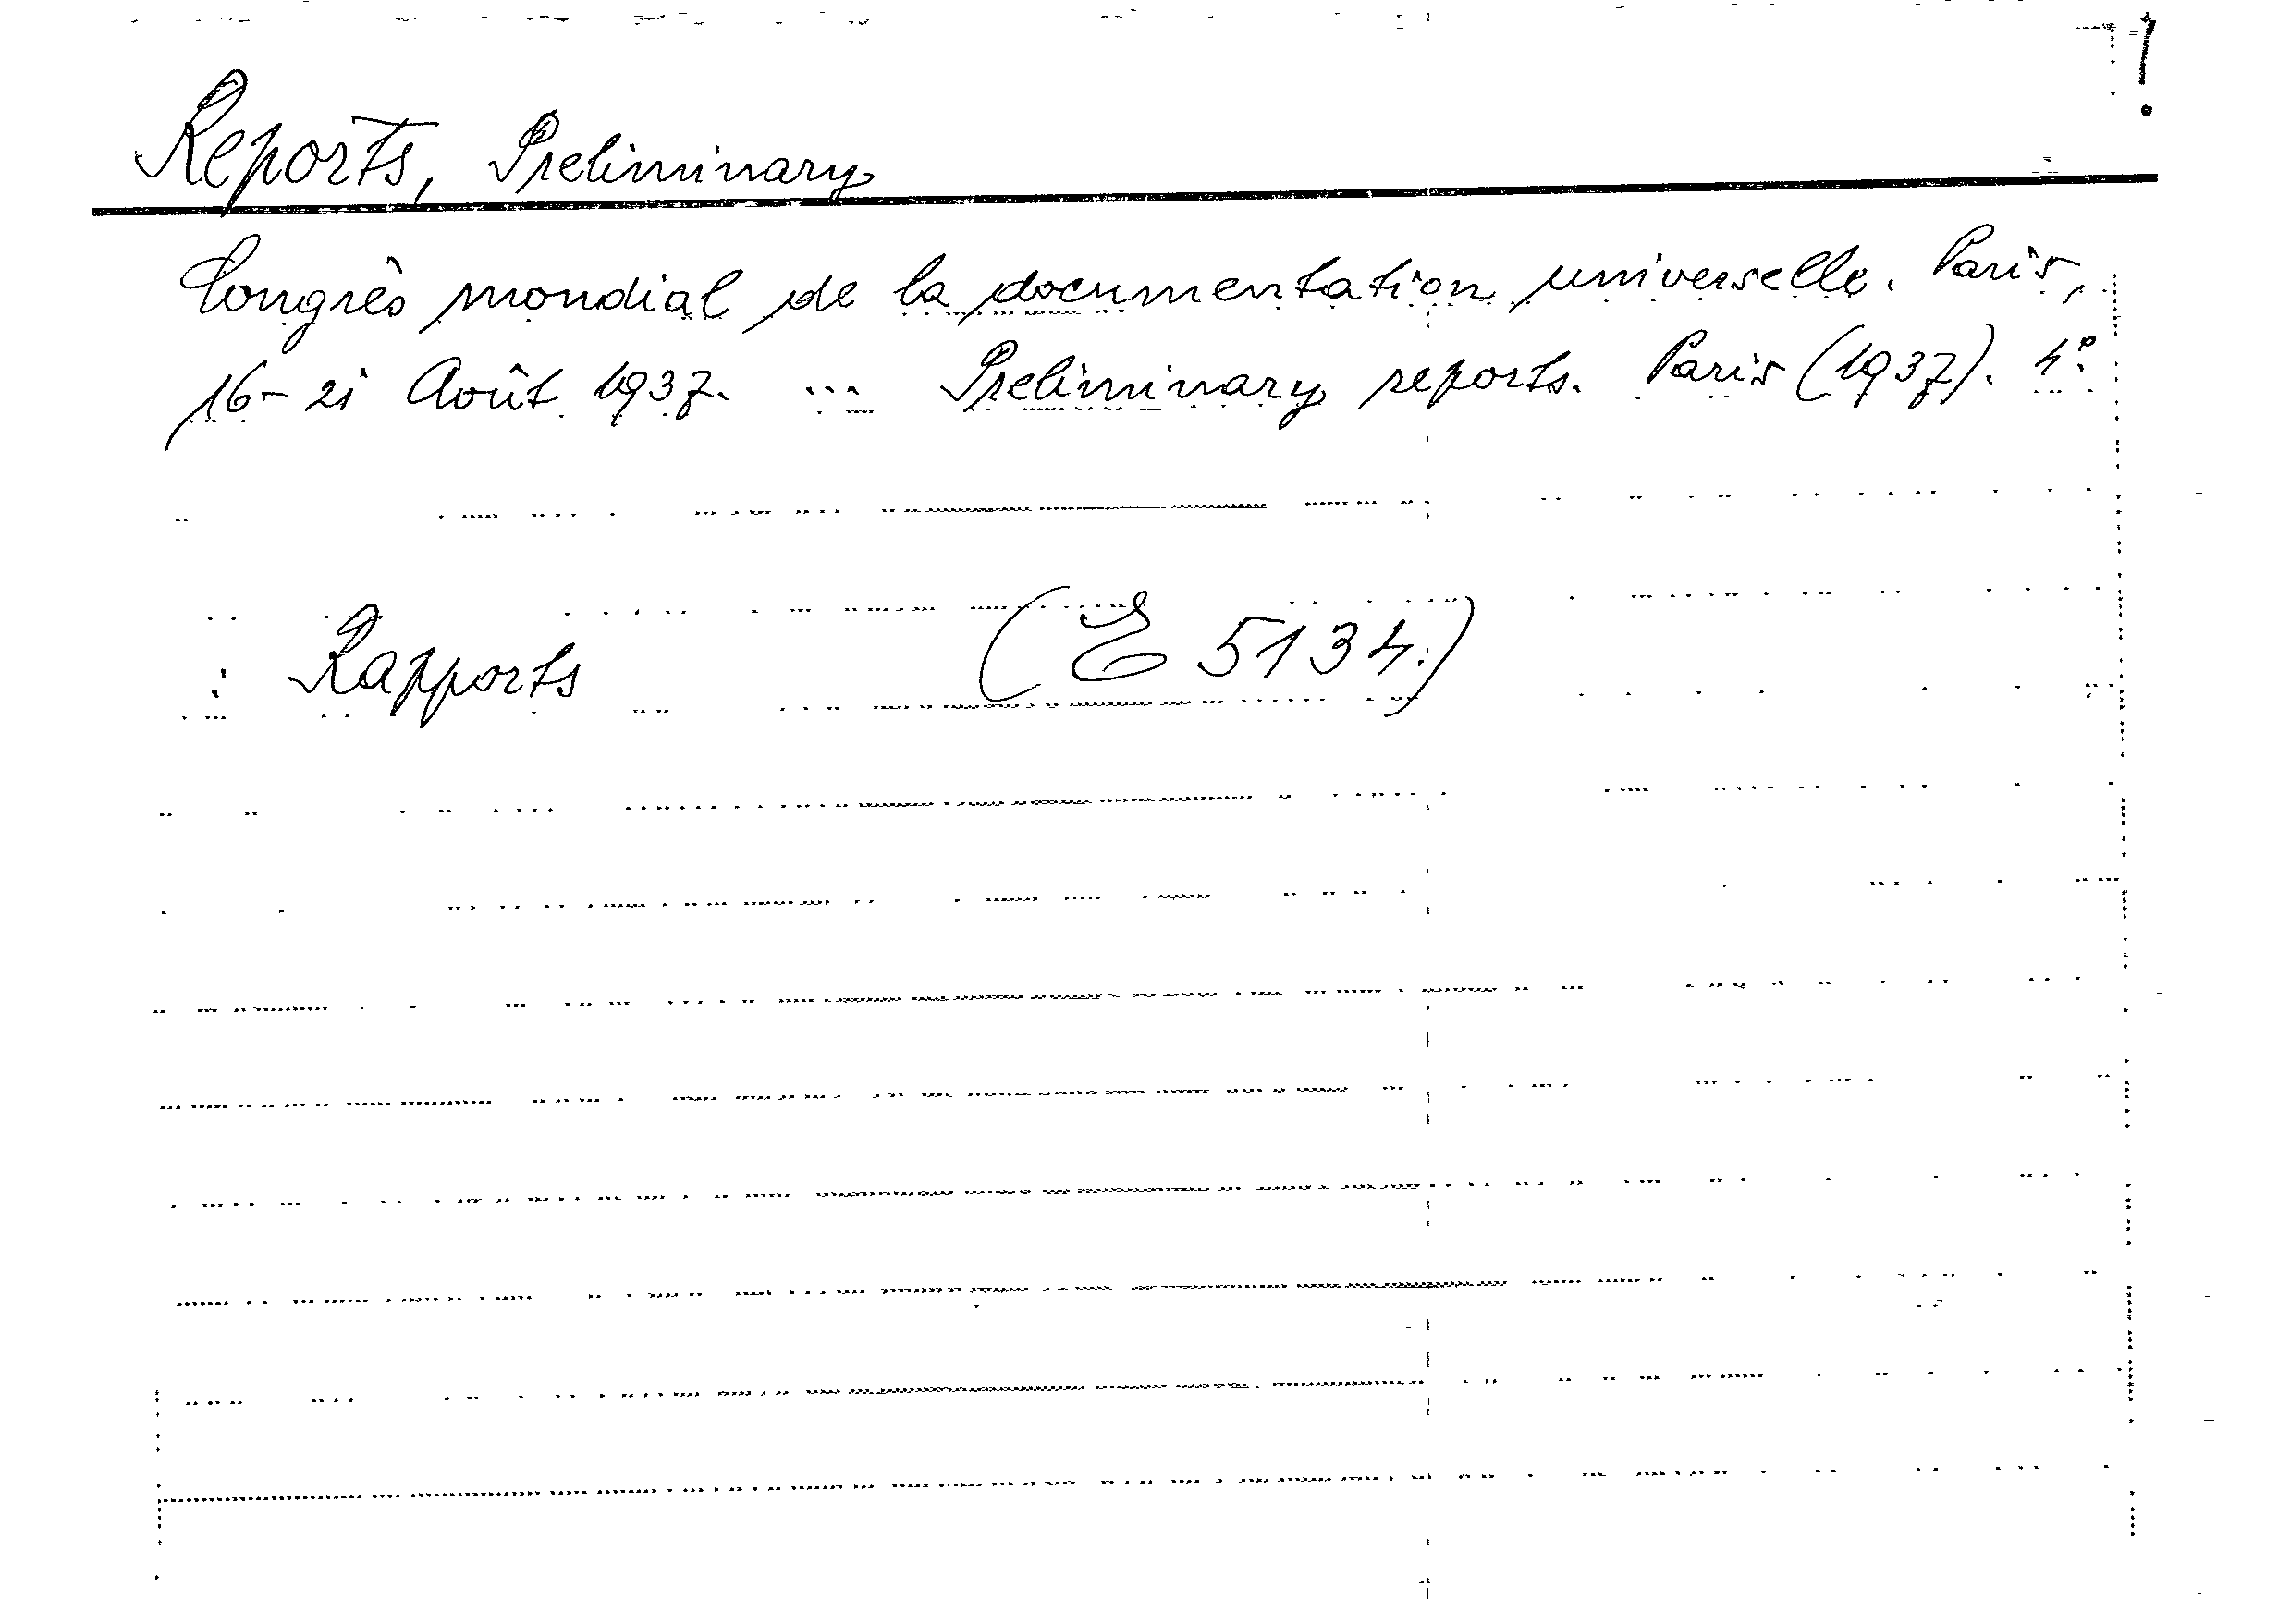 !
Reports, Preliminary
Congrès mondial de la documentation universelle. Paris,
16-21 Août 1937. ... Preliminary reports. Paris (1937). 4°.
: Rapports (E 5134.)